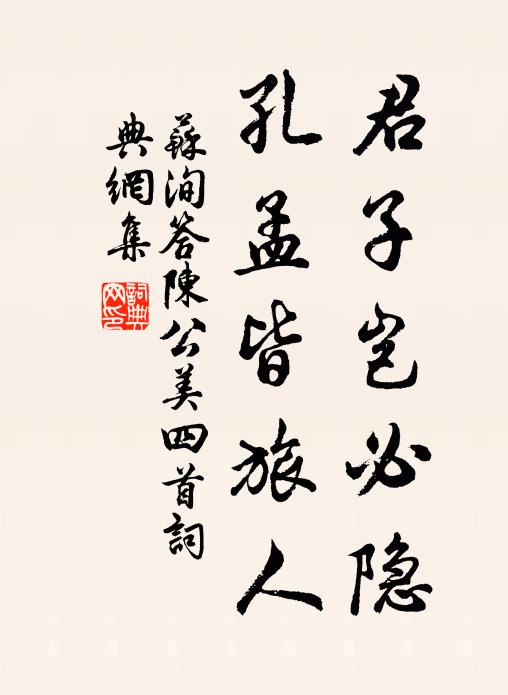 君子岂必隐
孔孟皆旅人
蘇洵答陳公美四首詞
典網集
詞典网印